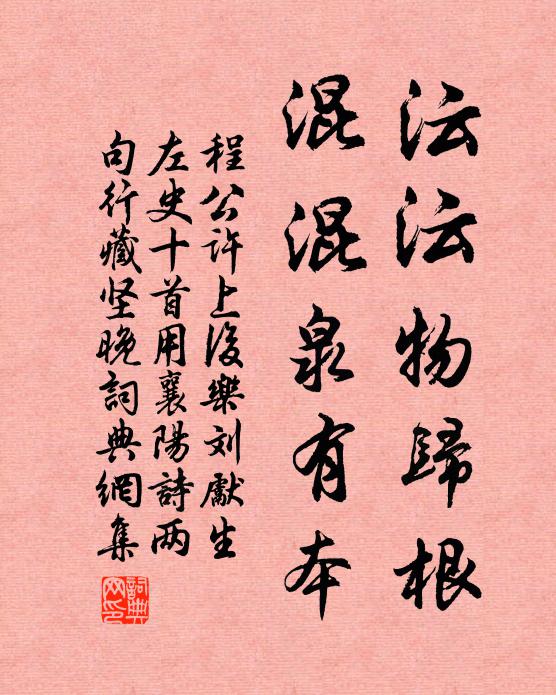 沄沄物歸根
混混泉有本
程公许上後樂刘獻生
左史十首用襄陽詩两
句行藏坚晚詞典網集
詞典网印